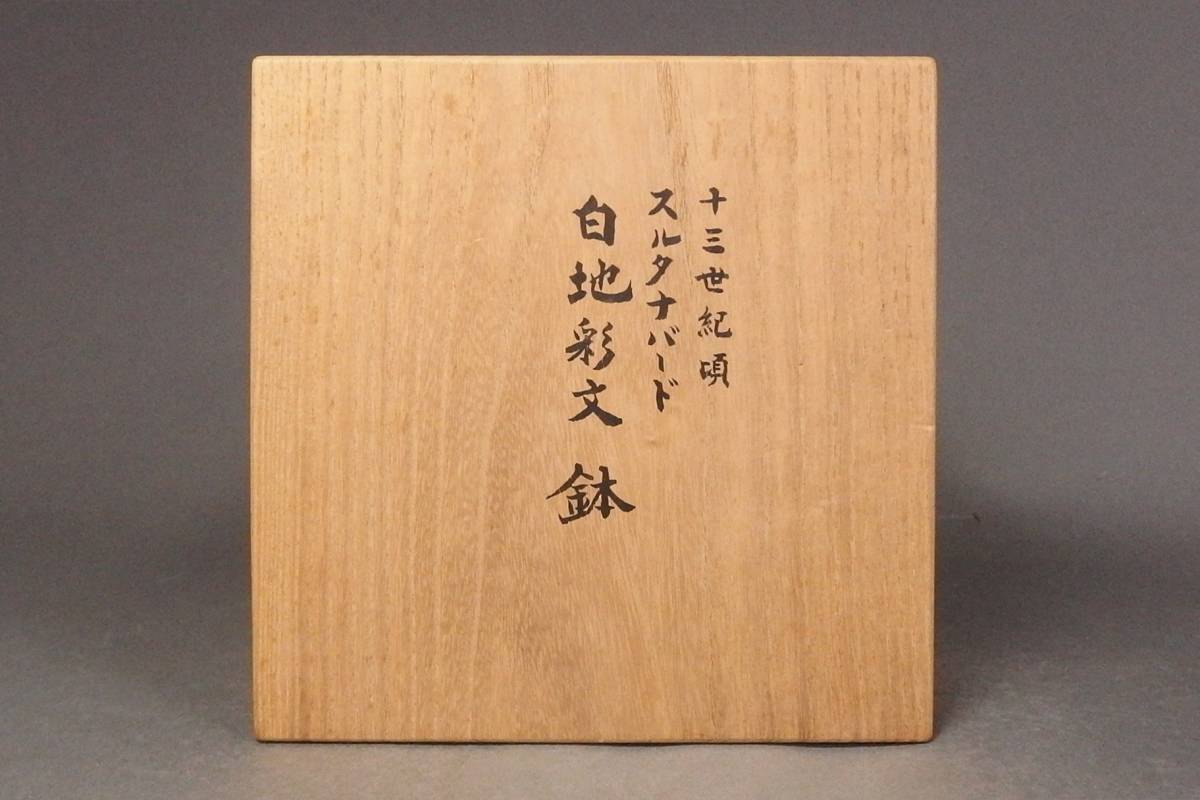 十三世紀頃
スルタナバード
白地彩文鉢